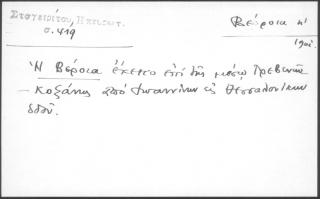 Σταγειρίτου, Ηπειρωτ.
σ. 419
Βέροια η'
Ἡ Βέροια ἔκειτο ἐπὶ τῆς μέσῳ Γρεβενῶν
– Κοζάνης ἀπὸ Ἰωαννίνων εἰς Θεσσαλονίκην
ὁδοῦ.